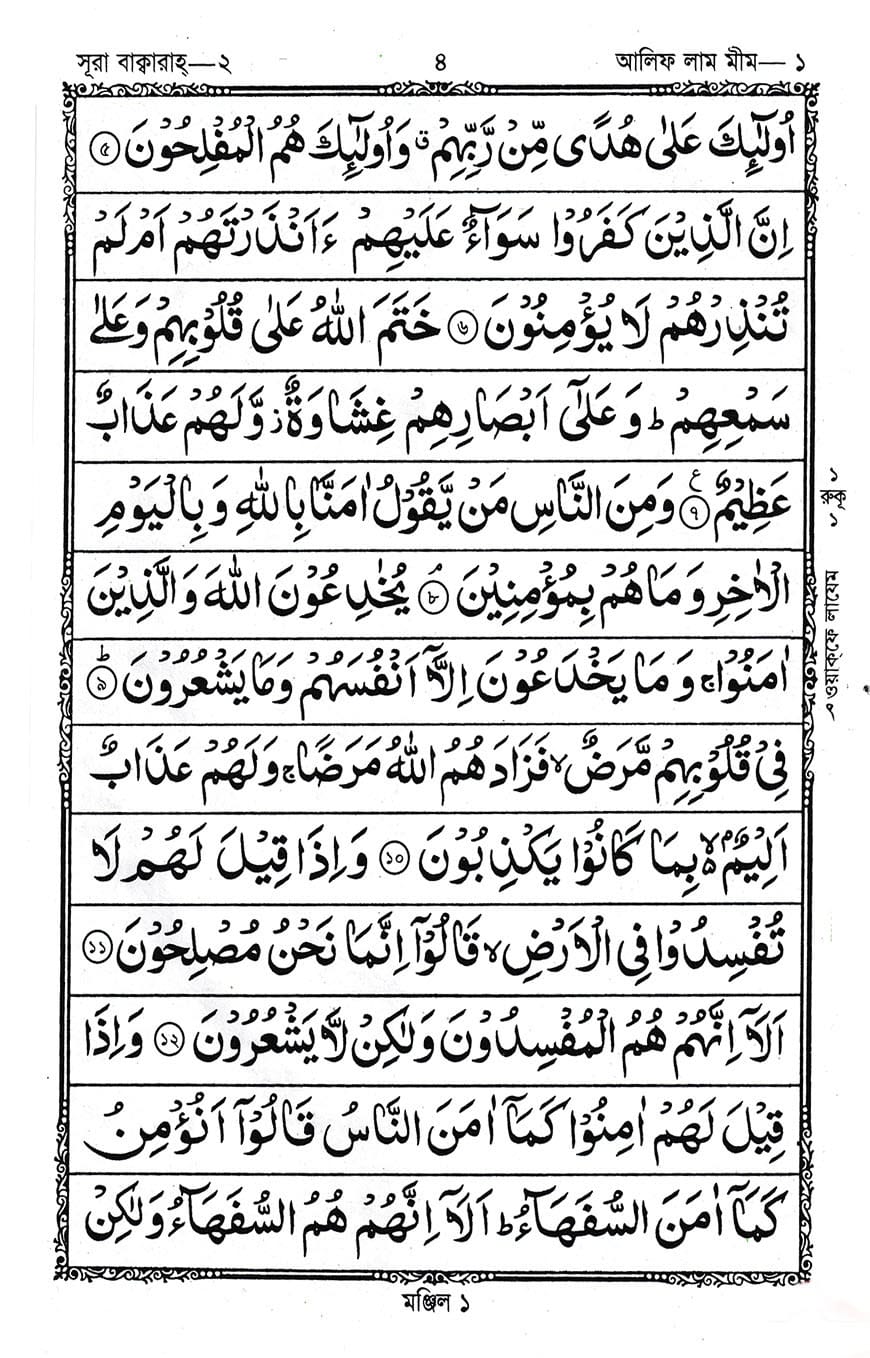 সূরা বাক্বারাহ্—২ ৪ আলিফ লাম মীম—১
اُولٰٓئِكَ عَلٰى هُدًى مِّنْ رَّبِّهِمْ ۗ وَاُولٰٓئِكَ هُمُ الْمُفْلِحُوْنَ ৫
اِنَّ الَّذِيْنَ كَفَرُوْا سَوَآءٌ عَلَيْهِمْ ءَاَنْذَرْتَهُمْ اَمْ لَمْ
تُنْذِرْهُمْ لَا يُؤْمِنُوْنَ ৬ خَتَمَ اللّٰهُ عَلٰى قُلُوْبِهِمْ وَعَلٰى
سَمْعِهِمْ ؕ وَعَلٰٓى اَبْصَارِهِمْ غِشَاوَةٌ ز وَّلَهُمْ عَذَابٌ
عَظِيْمٌ ৭ ع وَمِنَ النَّاسِ مَنْ يَّقُوْلُ اٰمَنَّا بِاللّٰهِ وَبِالْيَوْمِ
الْاٰخِرِ وَمَا هُمْ بِمُؤْمِنِيْنَ ৮ ۘ يُخٰدِعُوْنَ اللّٰهَ وَالَّذِيْنَ
اٰمَنُوْا ۚ وَمَا يَخْدَعُوْنَ اِلَّآ اَنْفُسَهُمْ وَمَا يَشْعُرُوْنَ ৯ ؕ
فِىْ قُلُوْبِهِمْ مَّرَضٌ ۙ فَزَادَهُمُ اللّٰهُ مَرَضًا ۚ وَلَهُمْ عَذَابٌ
اَلِيْمٌۢ ۙ۬ بِمَا كَانُوْا يَكْذِبُوْنَ ১০ وَاِذَا قِيْلَ لَهُمْ لَا
تُفْسِدُوْا فِى الْاَرْضِ ۙ قَالُوْٓا اِنَّمَا نَحْنُ مُصْلِحُوْنَ ১১
اَلَآ اِنَّهُمْ هُمُ الْمُفْسِدُوْنَ وَلٰكِنْ لَّا يَشْعُرُوْنَ ১২ وَاِذَا
قِيْلَ لَهُمْ اٰمِنُوْا كَمَآ اٰمَنَ النَّاسُ قَالُوْٓا اَنُؤْمِنُ
كَمَآ اٰمَنَ السُّفَهَآءُ ؕ اَلَآ اِنَّهُمْ هُمُ السُّفَهَآءُ وَلٰكِنْ
১
রুকূ
১
ওয়াক্‌ফে লাযেম
মঞ্জিল ১